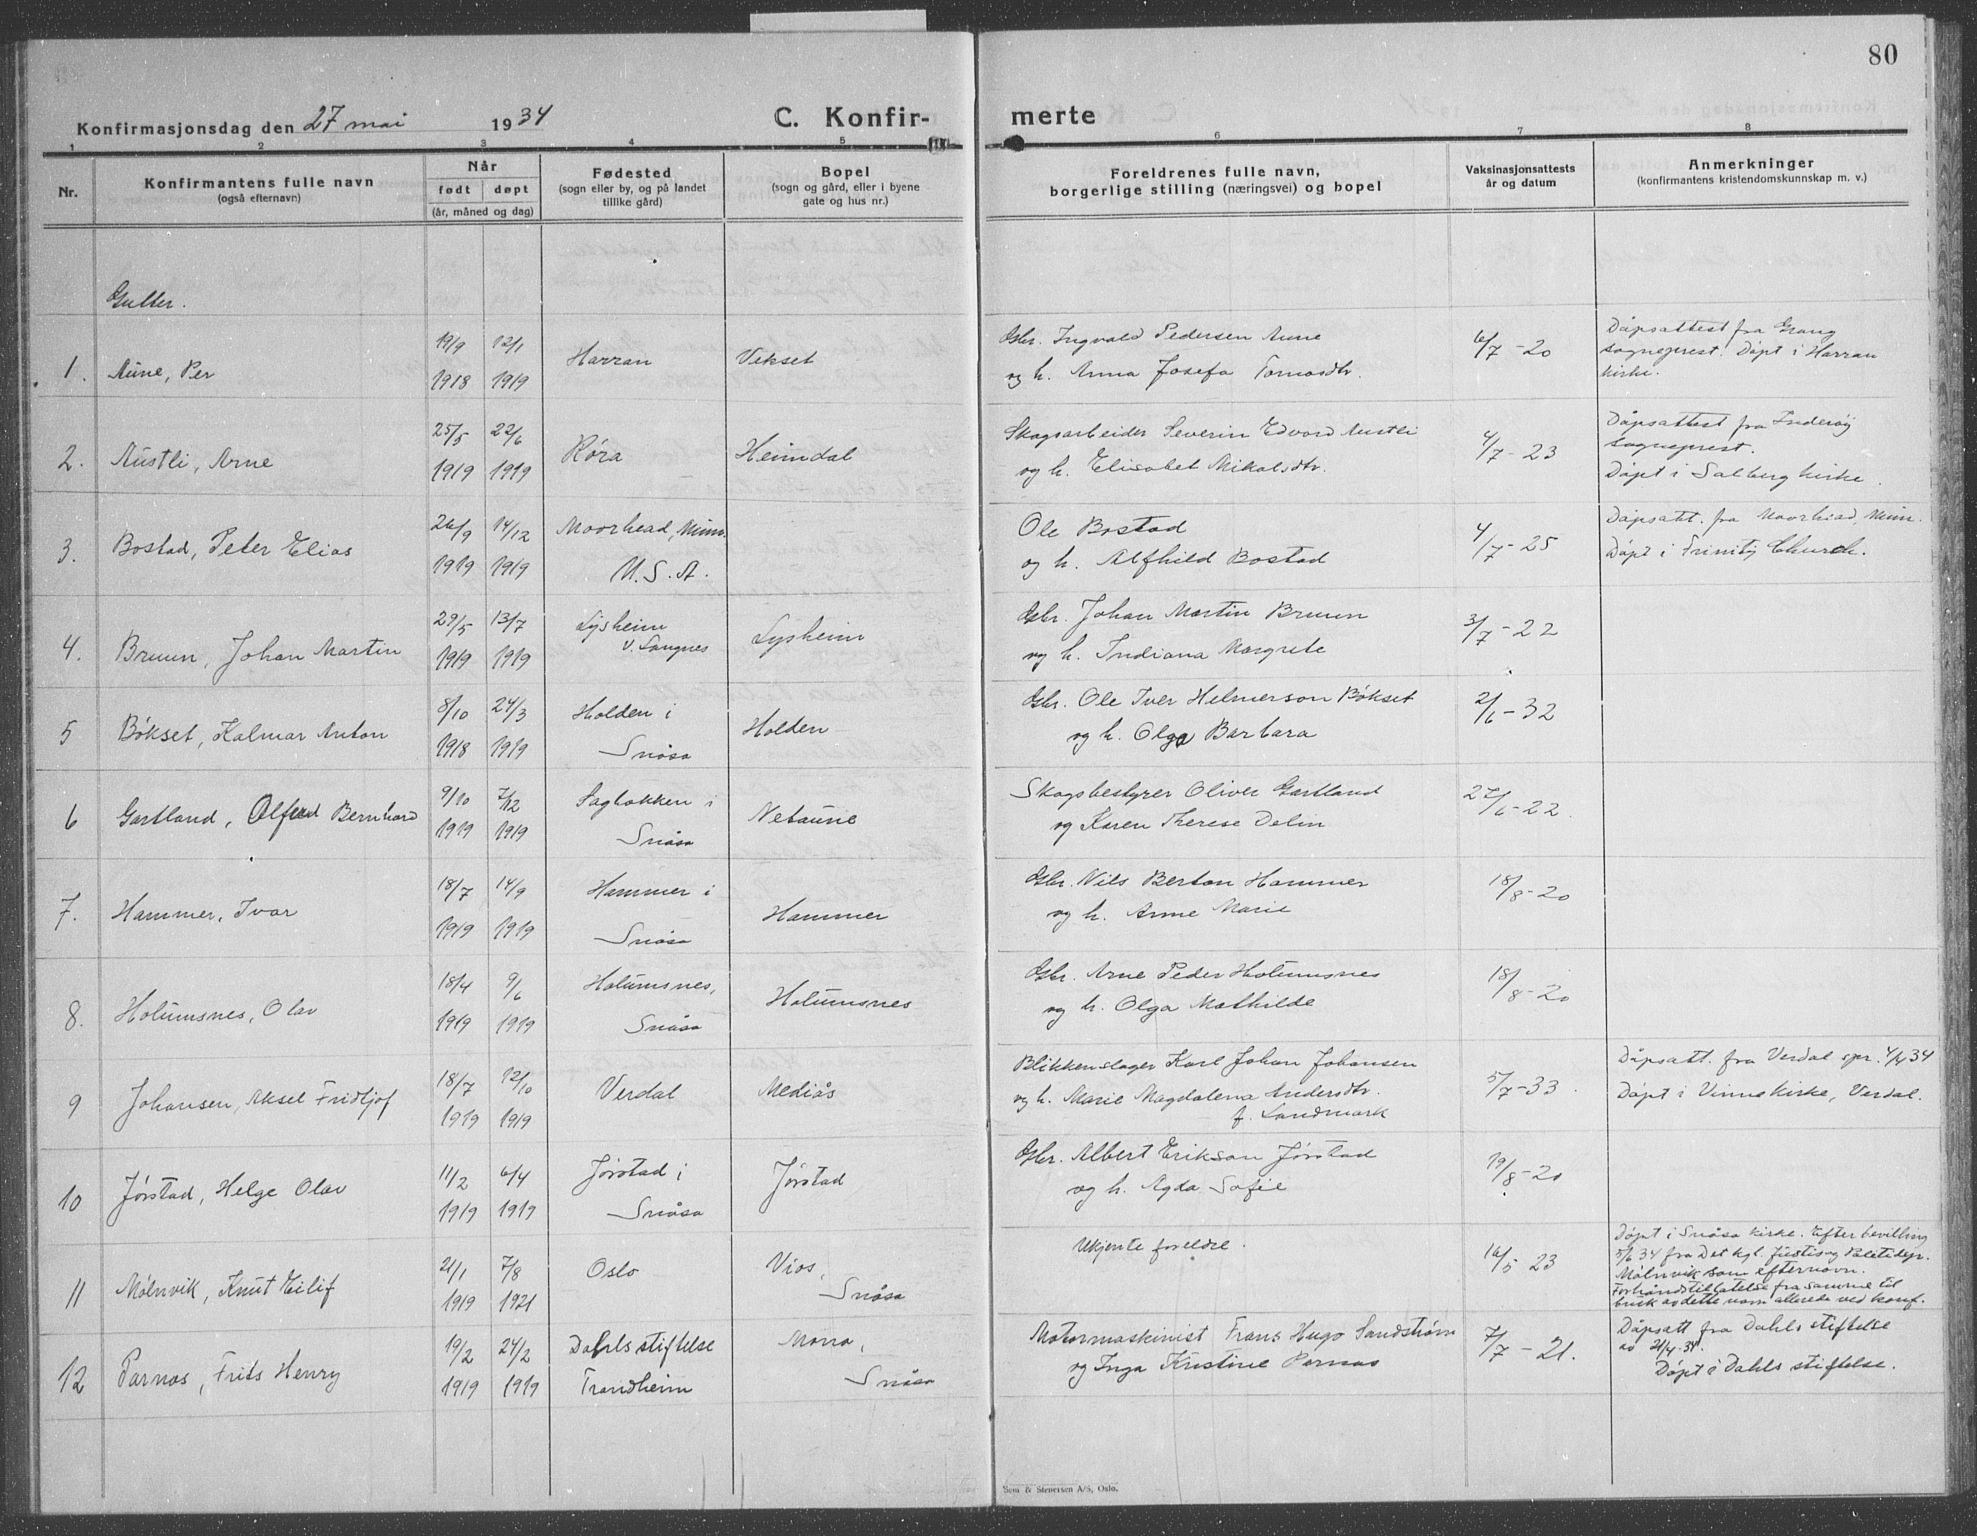 80
Konfirmasjonsdag den 27 mai 1934
C. Konfir-
merte
1 2 3 4 5 6 7 8
Nr.
Konfirmantens fulle navn
(også efternavn)
Når
født døpt
(år, måned og dag)
Fødested
(sogn eller by, og på landet
tillike gård)
Bopel
(sogn og gård, eller i byene
gate og hus nr.)
Foreldrenes fulle navn,
borgerlige stilling (næringsvei) og bopel
Vaksinasjonsattests
år og datum
Anmerkninger
(konfirmantens kristendomskunnskap m. v.)
Gutter.
1. Aune, Per
19/9 1918
12/1 1919
Harran
Vekset
Gbr. Ingvald Pedersen Aune
og h. Anna Josefa Tomasdtr.
6/7-20
Dåpsattest fra Grong
sogneprest. Døpt i Harran
kirke.
2. Austli, Arne
25/5 1919
22/6 1919
Røra
Heimdal
Skogsarbeider Severin Edvard Austli
og h. Elisabet Mikalsdtr.
4/7-23
Dåpsattest fra Inderøy
sogneprest.
Døpt i Salberg kirke.
3. Bostad, Peter Elias
26/9 1919
14/12 1919
Moorhead, Minn.
U.S.A.
Ole Bostad
og h. Alfhild Bostad
4/7-25
Dåpsatt. fra Moorhead, Minn.
Døpt i Trinity Church.
4. Bruun, Johan Martin
29/5 1919
13/7 1919
Lysheim
v. Langnes
Lysheim
Gbr. Johan Martin Bruun
og h. Indiana Margrete
3/7-22
5 Bøkset, Kalmar Anton
8/10 1918
24/3 1919
Holden i
Snåsa
Holden
Gbr. Ole Iver Helmersen Bøkset
og h. Olga Barbara
2/6-32
6 Gartland, Alfred Bernhard
9/10 1919
7/12 1919
Sagbakken i
Snåsa
Netaune
Skogsbestyrer Oliver Gartland
og Karen Therese Delin
27/6-22.
7. Hammer, Ivar
18/7 1919
14/9 1919
Hammer i
Snåsa
Hammer
Gbr. Nils Berton Hammer
og h. Anne Marie
18/8-20
8. Holumsnes, Olav
18/4 1919
9/6 1919
Holumsnes,
Snåsa
Holumsnes
Gbr. Arne Peder Holumsnes
og h. Olga Mathilde
18/8-20
9 Johansen, Aksel Fridtjof
18/7 1919
12/10 1919
Verdal
Mediås
Blikkenslager Karl Johan Johansen
og h. Marie Magdalena Andersdtr.
f. Landmark
5/7-33.
Dåpsatt. fra Verdal spr. 4/4 34
Døpt i Vinne kirke, Verdal.
10 Jørstad, Helge Olav
11/2 1919
6/4 1919
Jørstad i
Snåsa
Jørstad
Gbr. Albert Erikson Jørstad
og h. Agda Sofie
19/8-20
11 Mølnvik, Knut Eilif
21/1 1919
7/8 1921
Oslo
Vios,
Snåsa
Ukjente foreldre.
16/5 23
Døpt i Snåsa kirke. Efter bevilling
5/6 34 fra Det kgl. Justis og Politidep.
Mølnvik som efternavn.
Forhåndstillatelse fra samme til
bruk av dette navn allerede ved konf.
12 Parnas, Frits Henry
19/2 1919
24/2 1919
Dahls stiftelse
Trondheim
Mona,
Snåsa
Motormaskinist Frans Hugo Sandstrøm
og Inga Kristine Parnas
7/7-21.
Dåpsatt fra Dahls stiftelse
av 21/4-34.
Døpt i Dahls stiftelse.
Sem & Stenersen A/S, Oslo.